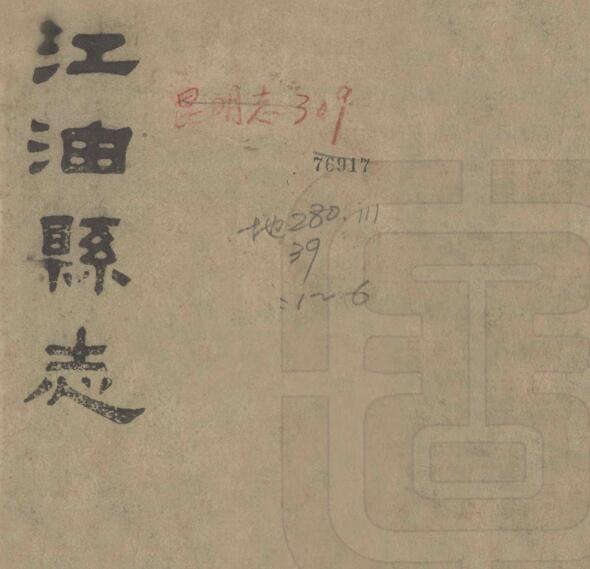 江油縣志
昆明志309
76917
地280.111
39
:1~6